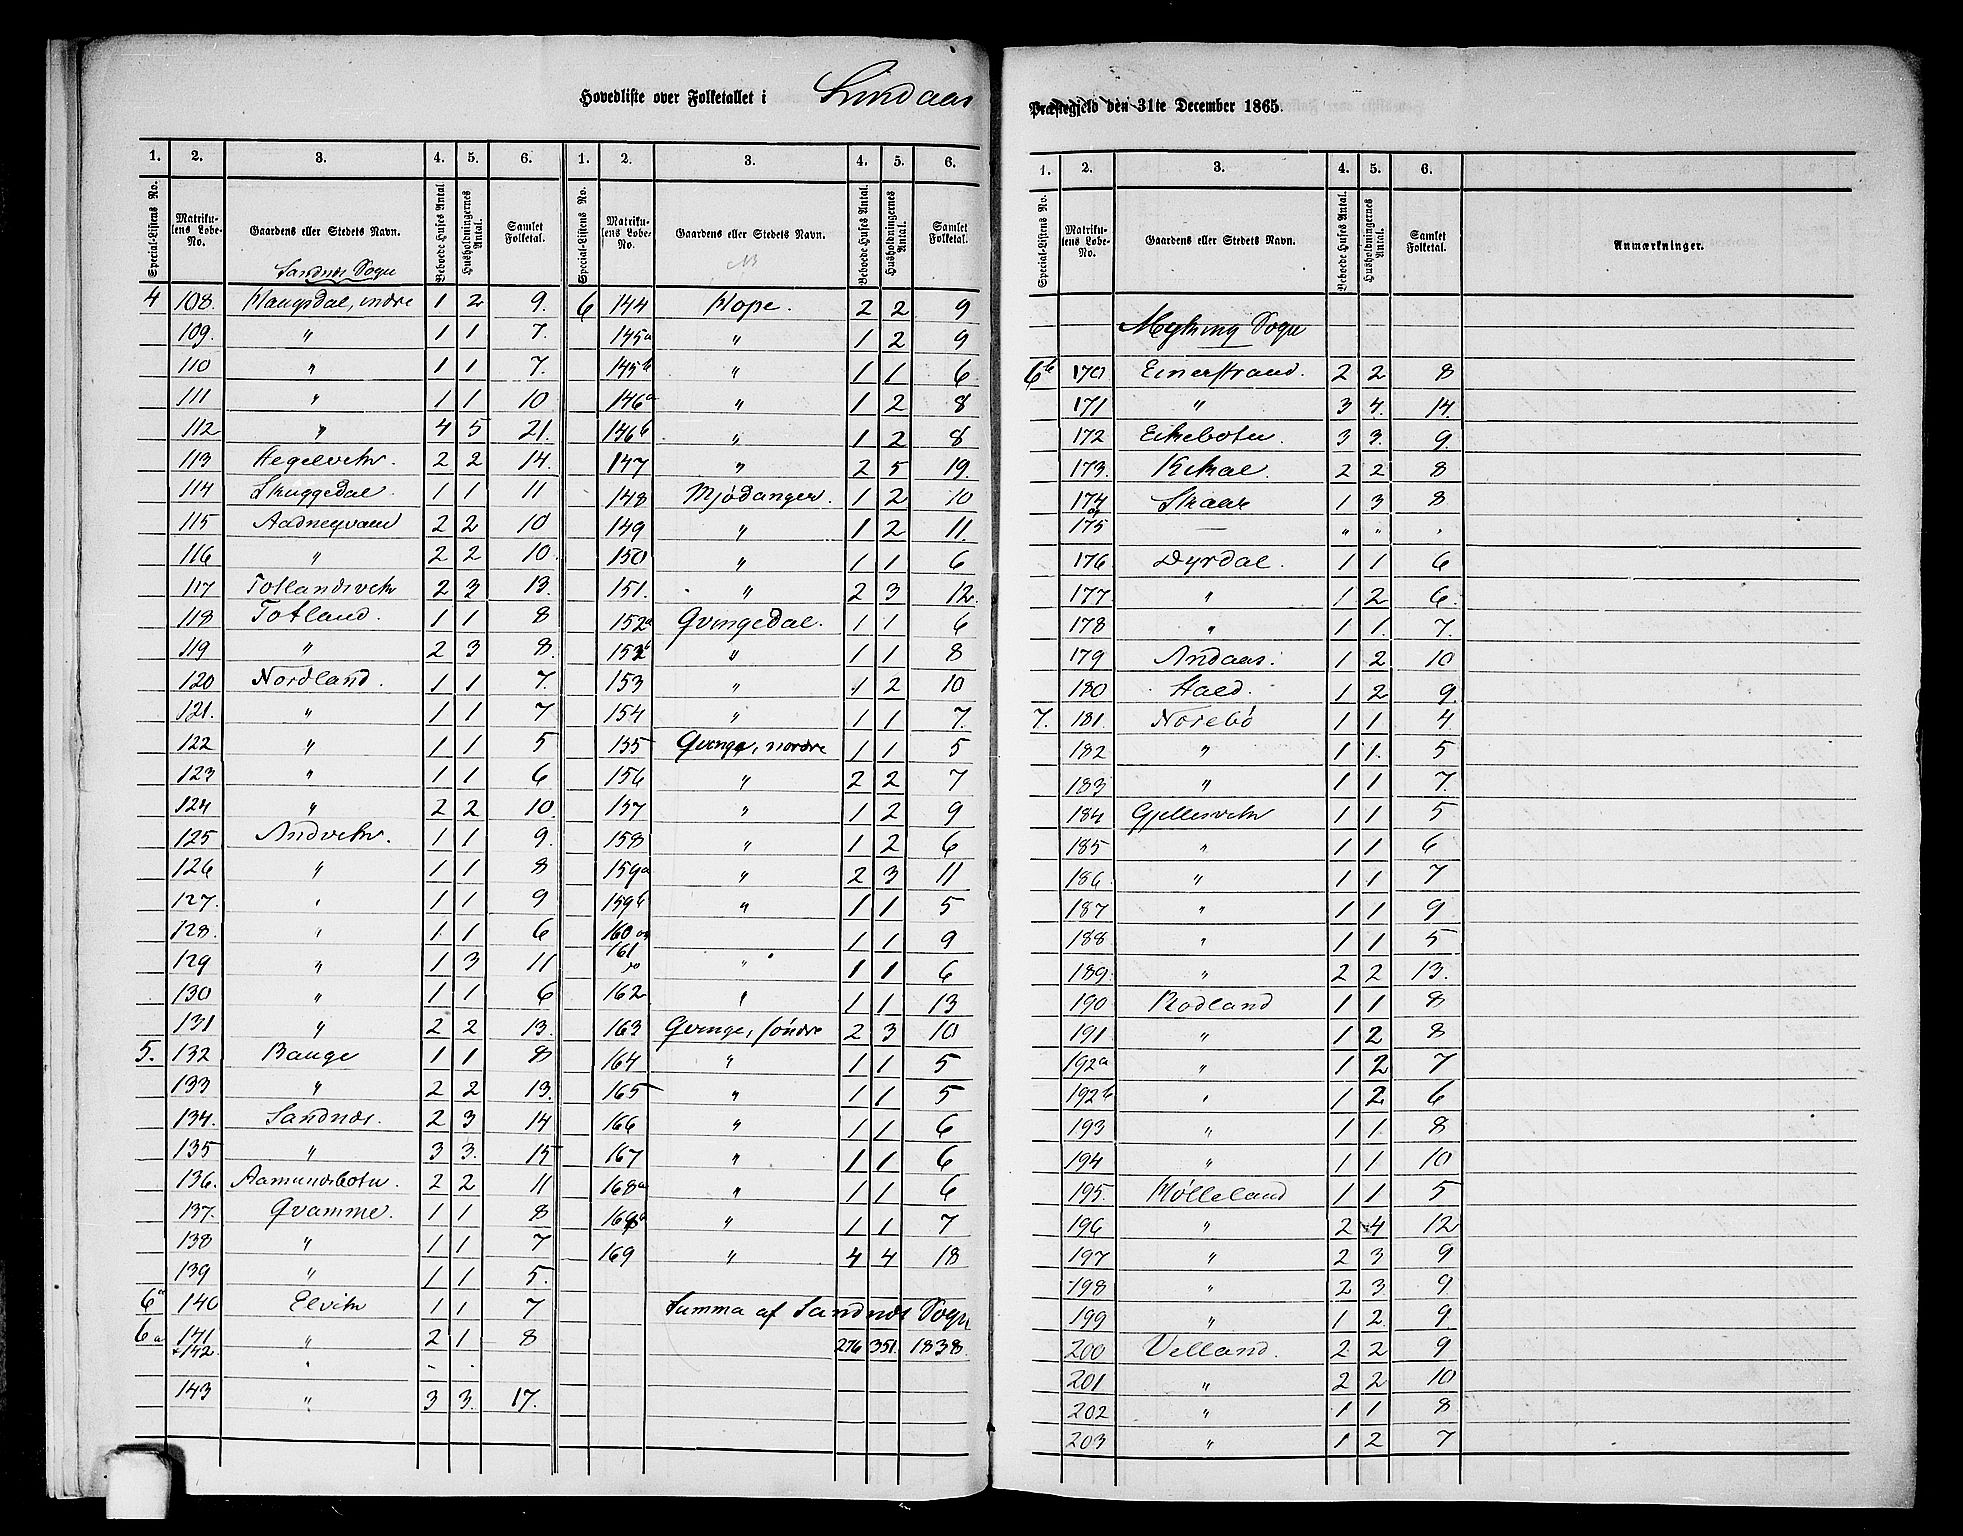 Hovedliste over Folketallet i Lindaas
Præstegjeld den 31te December 1865.
1. 2. 3. 4. 5. 6. 1. 2. 3. 4. 5. 6.
Special-Listens No. Matrikulens Løbe-No. Gaardens eller Stedets Navn. Beboede Huses Antal. Husholdningernes Antal. Samlet Folketal. Special-Listens No. Matrikulens Løbe-No. Gaardens eller Stedets Navn. Beboede Huses Antal. Husholdningernes Antal. Samlet Folketal.
Sandnes Sogn
4 108. Haugsdal, indre 1 2 9.
109. " 1 1 7.
110 " 1 1 7.
111 " 1 1 10
112 " 4 5 21.
113 Hegelvikn. 2 2 14.
114 Skuggedal. 1 1 11
115 Aadneqvam 2 2 10
116 " 2 2 10.
117 Totlandsvikn 2 3 13.
118 Totland. 1 1 8
119 " 2 3 8.
120 Nordland. 1 1 7.
121. " 1 1 7
122 " 1 1 5
123 " 1 1 6
124 " 2 2 10.
125 Andvikn. 1 1 9.
126 " 1 1 8
127. " 1 1 9
128. " 1 1 6
129 " 1 3 11
130 " 1 1 6
131 " 2 2 13.
5. 132 Bauge 1 1 8
133 " 2 2 13.
134. Sandnes. 2 3 14
135 " 3 3. 15
136. Aamundsbotn. 2 2 11
137. Qvamme. 1 1 8
138 " 1 1 7
139 " 1 1 5.
6a 140 Elvikn 1 1 7
6a 141 + 142 " 2 1 8
143 " 3 3. 17.
6 144 Hope. 2 2 9
145a " 1 2 9
145b " 1 1 6
146a " 1 2 8
146b " 1 2 8
147 " 2 5 19.
148 Mjødanger. 1 2 10
149 " 1 2 11.
150 " 1 1 6
151. " 2 3 12.
152a Qvingedal. 1 1 6
152b " 1 1 8
153 " 1 2 10
154 " 1 1 7.
155 Qvinge, nordre 1 1 5
156 " 2 2 7
157 " 1 2 9
158 " 1 2 6
159a " 2 3 11
159b " 1 1 5
160 og 161 1 1 9
" 1 1 6
162 " 1 1 13
163 Qvinge, søndre 2 3 10
164 " 1 1 5
165 " 1 1 5
166 " 1 1 6
167 " 1 1 6
168a " 1 1 6
168b " 1 1 7
169 " 4 4 18
Summa af Sandnes Sogn
276 351. 1838.
1. 2. 3. 4. 5. 6.
Special-Listens No. Matrikulens Løbe-No. Gaardens eller Stedets Navn. Beboede Huses Antal. Husholdningernes Antal. Samlet Folketal. Anmærkninger.
Myking Sogn
6b 170 Einerstrand. 2 2 8
171 " 3 4. 14.
172 Eikebotn. 3 3. 9.
173. Kikal 2 2 8
174 Skaar 1 3 8
175 — " " .
176 Dyrdal. 1 1 6
177 " 1 2 6.
178 " 1 1. 7.
179 Andaas. 1 2 10
180 Hald. 1 2 9.
7. 181. Norebø 1 1 4
182 " 1 1. 5
183 " 1 1 7.
184 Gjellesvikn 1 1 5
185 " 1 1 6
186. " 1 1 7
187 " 1 1 9
188. " 1 1 5
189. " 2 2 13.
190 Rodland 1 1 8
191. " 1 2 8
192a " 1 2 7
192b " 1 2 6
193 " 1 1. 8
194 " 1 1 10
195. Hølleland 1 1 5
196 " 2 4 12
197 " 2 3 9
198 " 2 3. 9.
199 " 1 2. 9
200 Velland. 2 2 9
201 " 2 2 10
202 " 1 1 8
203 " 1 2 7